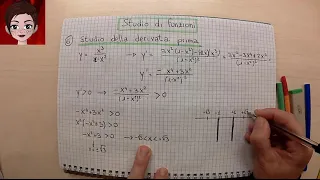 Studio di funzioni
6) Studio della derivata prima
y = x³/(1-x²) → y' = (3x²(1-x²)-(-2x)(x³))/(1-x²)² = (3x²-3x⁴+2x⁴)/(1-x²)²
y' = (-x⁴+3x²)/(1-x²)²
y' > 0 → (-x⁴+3x²)/(1-x²)² > 0
-x⁴+3x² > 0
x²(-x²+3) > 0
-x²+3 > 0 → -√3 < x < √3
±√3
-√3 -1